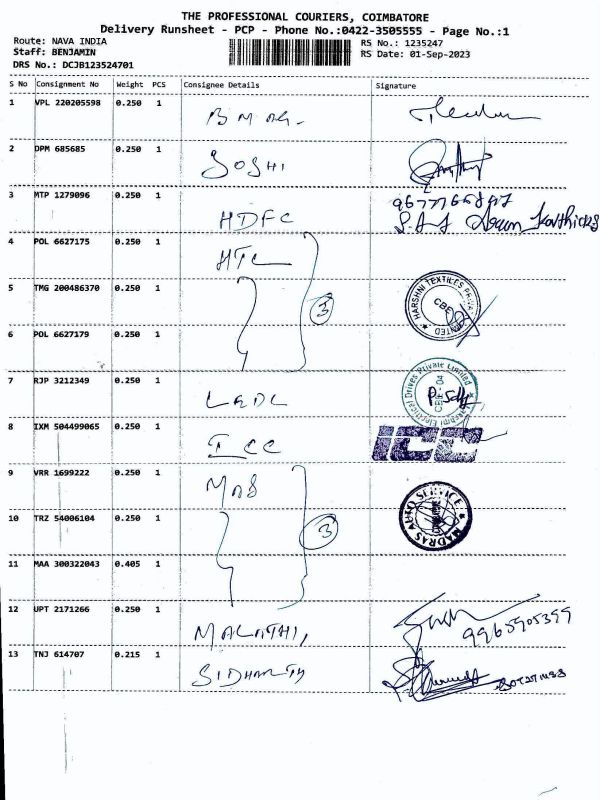 THE PROFESSIONAL COURIERS, COIMBATORE
Delivery Runsheet - PCP - Phone No.:0422-3505555 - Page No.:1
Route: NAVA INDIA
RS No.: 1235247
Staff: BENJAMIN
RS Date: 01-Sep-2023
DRS No.: DCJB123524701
S No Consignment No Weight PCS Consignee Details Signature
1 VPL 220205598 0.250 1
2 DPM 685685 0.250 1 JOSHI
3 MTP 1279096 0.250 1 HDFC
4 POL 6627175 0.250 1 HTL
5 TMG 200486370 0.250 1 3 HARSHNI TEXTILES CBE
6 POL 6627179 0.250 1
7 RJP 3212349 0.250 1 Electrical Drives Private Limited CBE - 04
8 IXM 504499065 0.250 1 ICC ICC
9 VRR 1699222 0.250 1 MAS
10 TRZ 54006104 0.250 1 3 MADRAS AUTO SERVICE
11 MAA 300322043 0.405 1
12 UPT 2171266 0.250 1 MALATHI, 9965905399
13 TNJ 614707 0.215 1 SIDHARTH